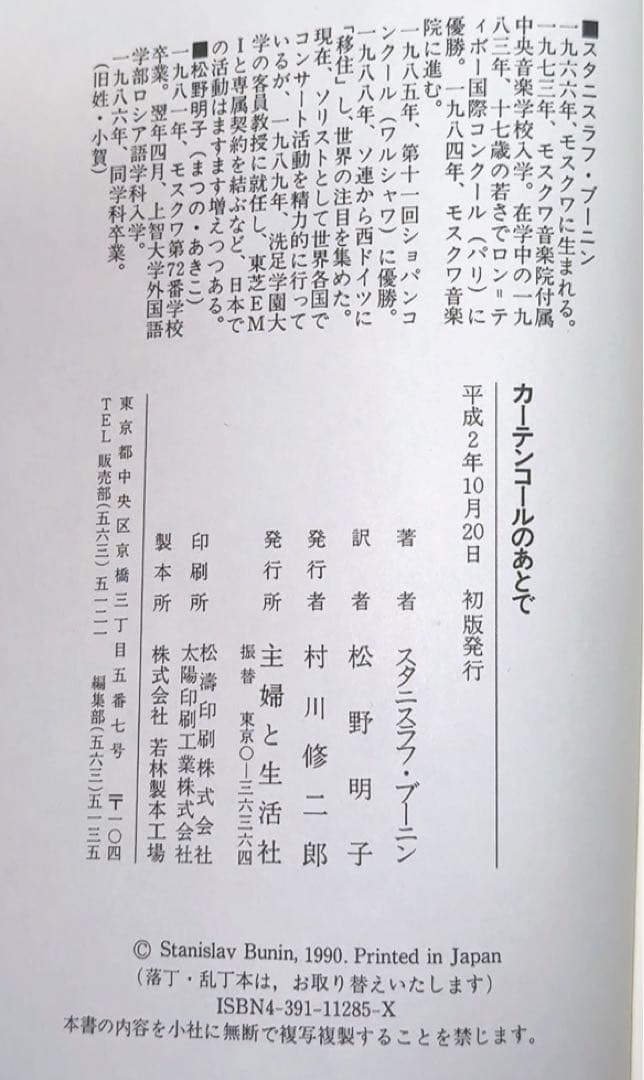 ■スタニスラフ・ブーニン
一九六六年、モスクワに生まれる。
一九七三年、モスクワ音楽院付属
中央音楽学校入学。在学中の一九
八三年、十七歳の若さでロン＝テ
ィボー国際コンクール（パリ）に
優勝。一九八四年、モスクワ音楽
院に進む。
一九八五年、第十一回ショパンコ
ンクール（ワルシャワ）に優勝。
一九八八年、ソ連から西ドイツに
「移住」し、世界の注目を集めた。
現在、ソリストとして世界各国で
コンサート活動を精力的に行って
いるが、一九八九年、洗足学園大
学の客員教授に就任し、東芝EM
Iと専属契約を結ぶなど、日本で
の活動はますます増えつつある。
■松野明子（まつの・あきこ）
一九八一年、モスクワ第72番学校
卒業。翌年四月、上智大学外国語
学部ロシア語学科入学。
一九八六年、同学科卒業。
（旧姓・小賀）
カーテンコールのあとで
平成2年10月20日 初版発行
著者 スタニスラフ・ブーニン
訳者 松野明子
発行者 村川修二郎
発行所 主婦と生活社
振替 東京〇―三六三六四
印刷所 松濤印刷株式会社
太陽印刷工業株式会社
製本所 株式会社 若林製本工場
東京都中央区京橋三丁目五番七号 〒一〇四
TEL 販売部（五六三）五一二一 編集部（五六三）五一三五
© Stanislav Bunin, 1990. Printed in Japan
（落丁・乱丁本は，お取り替えいたします）
ISBN4-391-11285-X
本書の内容を小社に無断で複写複製することを禁じます。